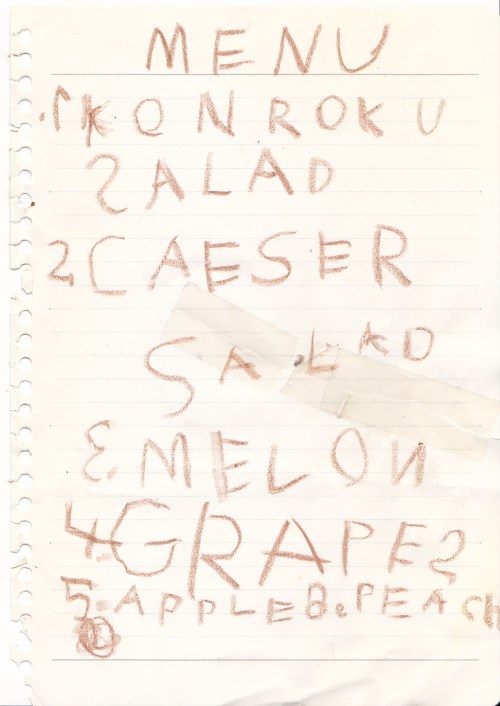 MENU
1. KONROKU
SALAD
2, CAESER
SALAD
3. MELON
4. GRAPES
5. APPLE8.PEACH